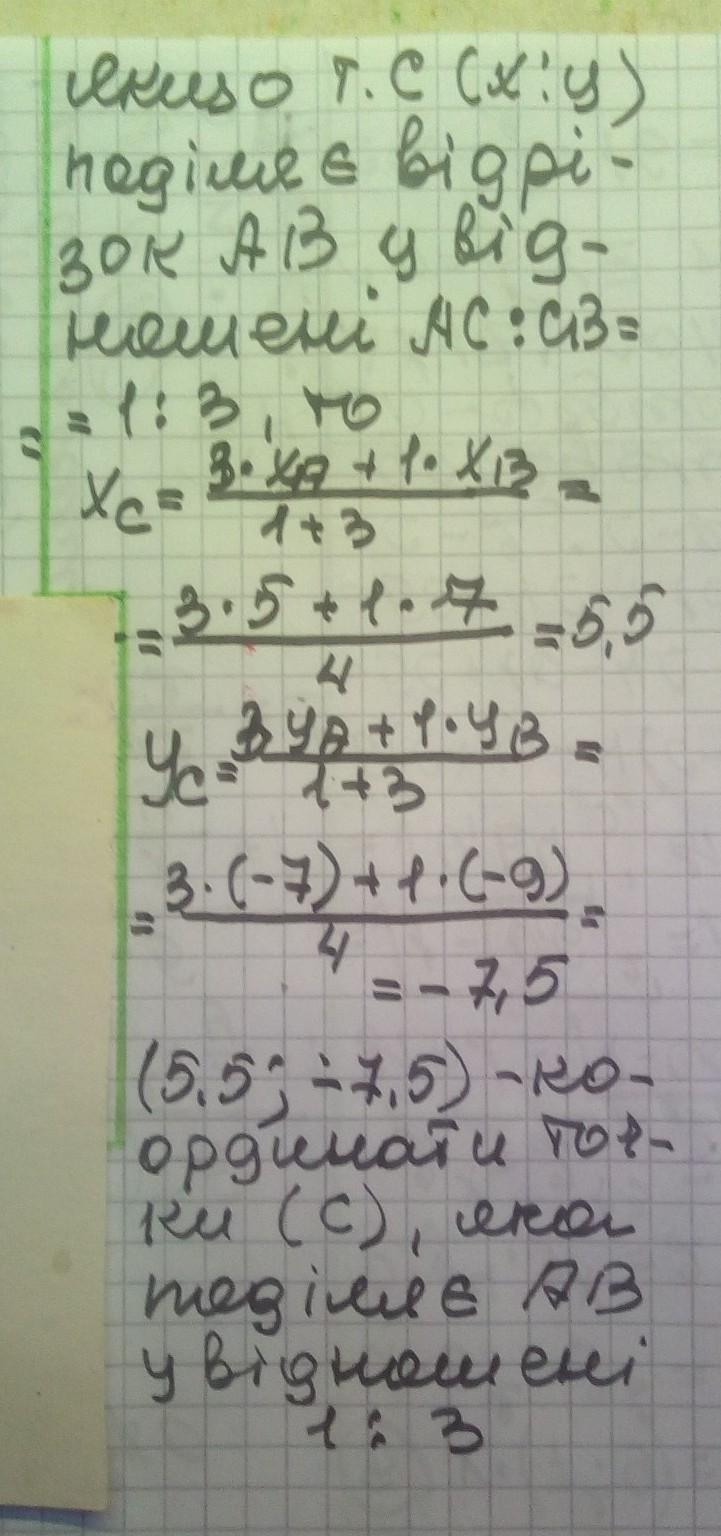 якщо т. С (х; у)
поділяє відрі-
зок АВ у від-
ношені АС : СВ =
= = 1 : 3, то
Xc = (3·XA + 1·XB)/(1+3) =
= (3·5 + 1·7)/4 = 5,5
Yc = (3 YA + 1·YB)/(1+3) =
= (3·(-7) + 1·(-9))/4 =
= -7,5
(5,5; -7,5) - ко-
ординати точ-
ки (С), яка
поділяє АВ
у відношені
1 : 3